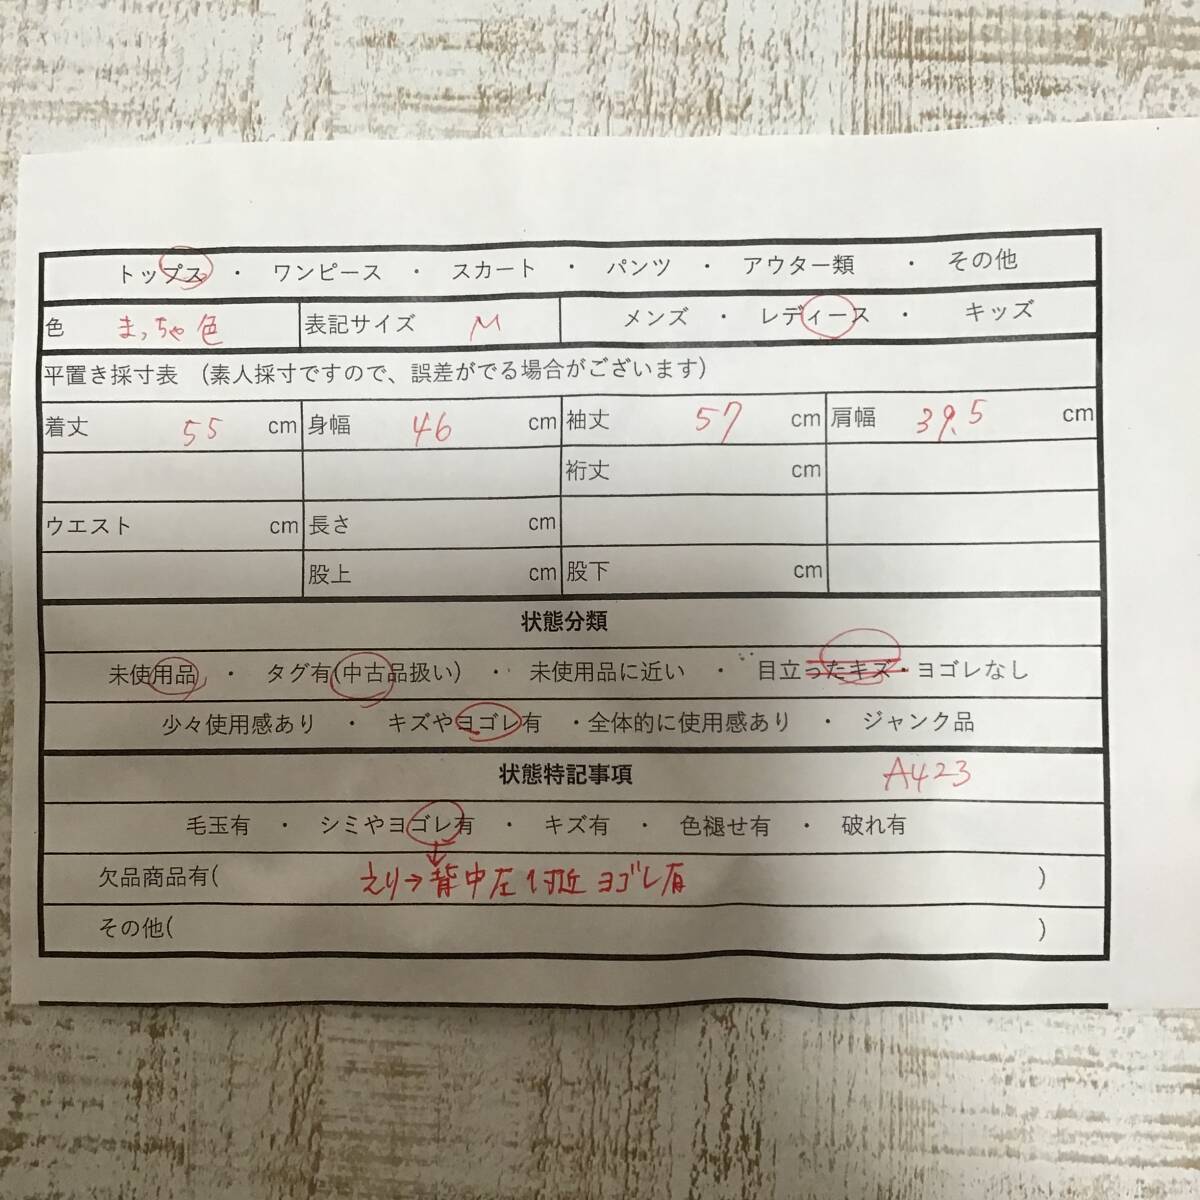 トップス ・ ワンピース ・ スカート ・ パンツ ・ アウター類 ・ その他
色 まっちゃ色 表記サイズ M メンズ ・ レディース ・ キッズ
平置き採寸表 (素人採寸ですので、誤差がでる場合がございます)
着丈 55 cm 身幅 46 cm 袖丈 57 cm 肩幅 39.5 cm
裄丈 cm
ウエスト cm 長さ cm
股上 cm 股下 cm
状態分類
未使用品 ・ タグ有(中古品扱い) ・ 未使用品に近い ・ 目立ったキズ・ヨゴレなし
少々使用感あり ・ キズやヨゴレ有 ・全体的に使用感あり ・ ジャンク品
状態特記事項 A423
毛玉有 ・ シミやヨゴレ有 ・ キズ有 ・ 色褪せ有 ・ 破れ有
欠品商品有( えり→背中左付近 ヨゴレ有 )
その他( )